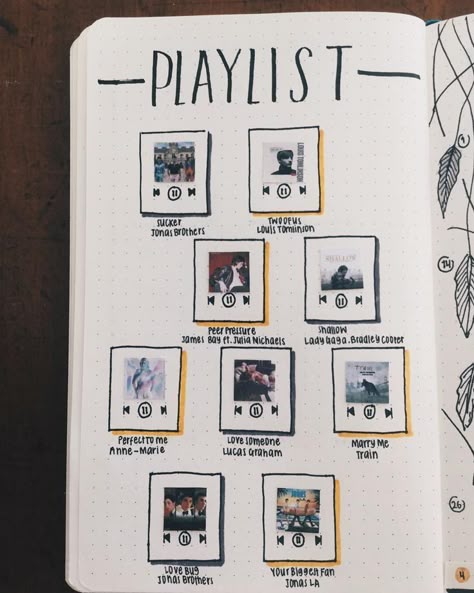 PLAYLIST
SUCKER
JONAS BROTHERS
TWO OF US
LOUIS TOMLINSON
PEER PRESSURE
JAMES BAY ft. JULIA MICHAELS
SHALLOW
LADY GAGA . BRADLEY COOPER
PERFECT TO ME
ANNE-MARIE
LOVE SOMEONE
LUCAS GRAHAM
MARRY ME
TRAIN
LOVE BUG
JONAS BROTHERS
YOUR BIGGEST FAN
JONAS LA
9
14
26
4